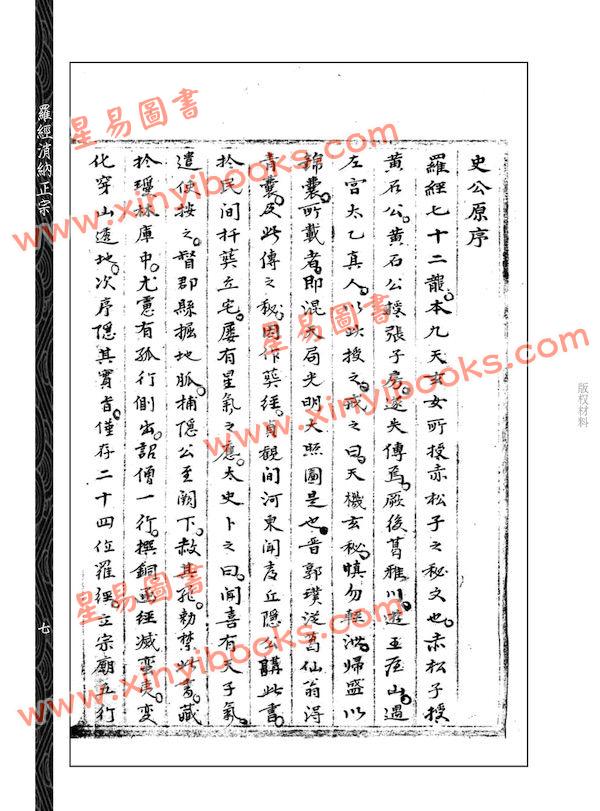 羅經消納正宗
七
史公原序
羅經七十二龍。本九天玄女所授赤松子之秘文也。赤松子授
黃石公。黃石公授張子房。遂失傳焉。厥後葛雅川。遊王屋山。遇
左宮太乙真人。以此授之。戒之曰。天機玄秘。慎勿輕洩。歸盛以
錦囊。所載者。即混天局光明大照圖是也。晋郭璞從葛仙翁得
青囊。及此傳之秘。因作葬經。貞觀間河東聞喜丘隱公購此書。
扵民间扦葬立宅。屡有星氣之應。太史卜之曰。聞喜有天子氣。
遣使按之。督郡縣掘地脈。捕隱公至闕下。赦其死。勅禁此書。藏
扵瓊林庫中。尤慮有孤行側出。詔僧一行。撰銅函經滅蛮夷。变
化穿山透地。次序隱其實旨。僅存二十四位羅經。立宗廟五行
版权材料
星易圖書
www.xinyibooks.com
星易圖書
www.xinyibooks.com
星易圖書
www.xinyibooks.com
星易圖書
www.xinyibooks.com